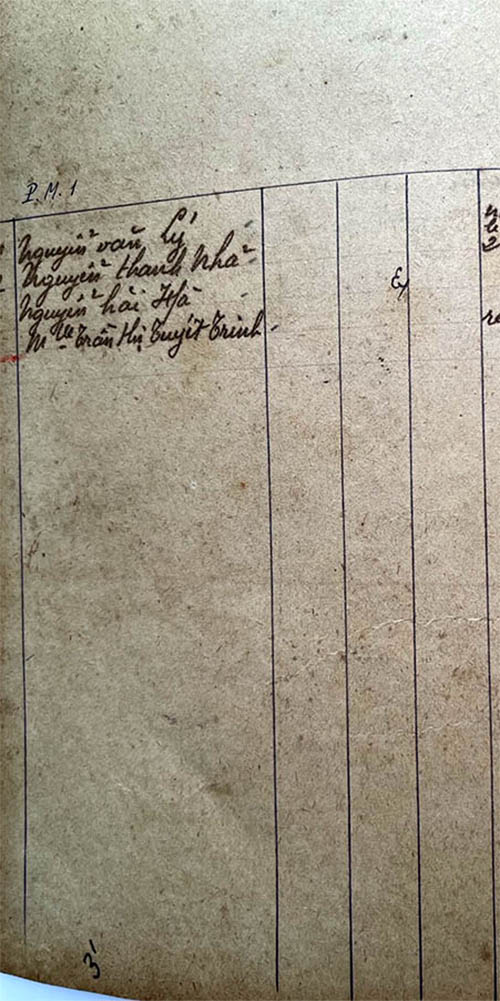 P.M.1
Nguyễn văn Lý
Nguyễn thanh Nhã
Nguyễn hải Hà
Mlle Trần thị Tuyết Trinh
3